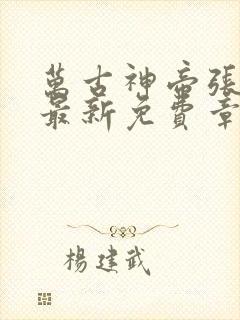 萬古神帝張
最新免費章
楊建武